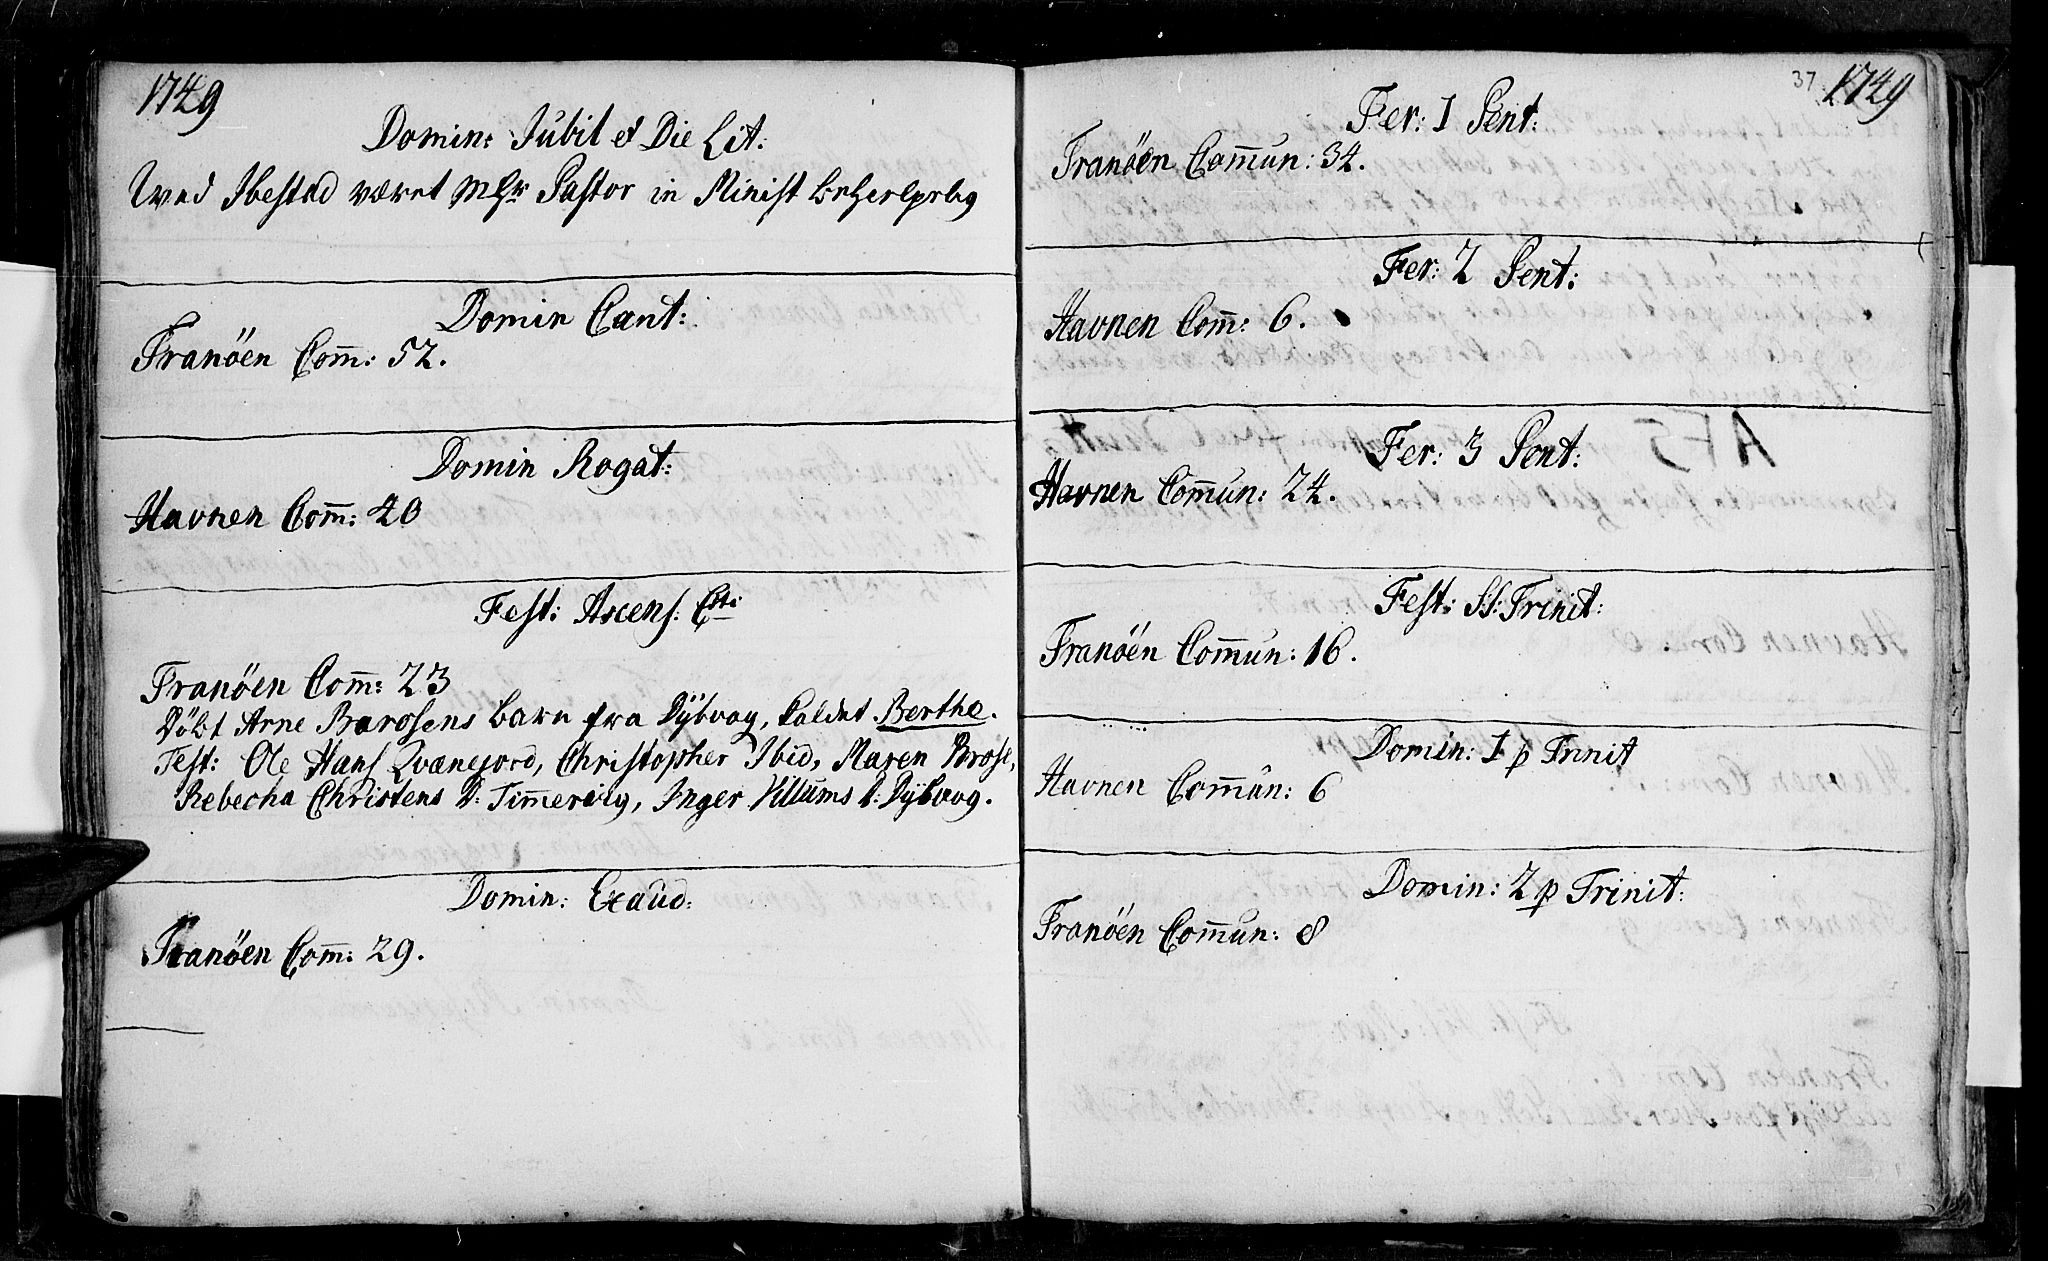 1749
Domin: Jubil et Die Lit:
Wed Ibestad været Mhr Pastor in Minist behielpelig
Domin Cant:
Tranöen Com̄: 52.
Domin Rogat:
Havnen Com̄: 40
Fest: Ascens: Csti
Tranöen Com̄: 23
Döbt Arne Barosens barn fra Dÿbvog, kaldet Berthe.
Test: Ole Hans Qvænejord, Christopher Ibid, Maren Brose,
Rebecha Christens D: Timmervig, Inger Villums D: Dÿbvog.
Domin: Exaud:
Tranöen Com̄: 29.
37 1749
Fer: 1 Pent:
Tranöen Com̄un: 34.
Fer: 2 Pent:
Havnen Com̄: 6.
Fer: 3 Pent:
Havnen Com̄un: 24.
Fest: SS: Trinit:
Tranöen Com̄un: 16.
Domin: 1 p Trinit
Havnen Com̄un: 6
Domin: 2 p Trinit:
Tranöen Com̄un: 8